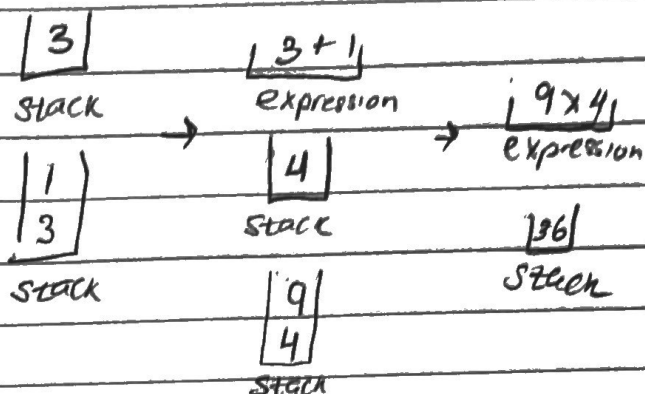 3
stack
1
3
stack
→
3 + 1
expression
4
stack
9
4
stack
→
9 x 4
expression
36
stack